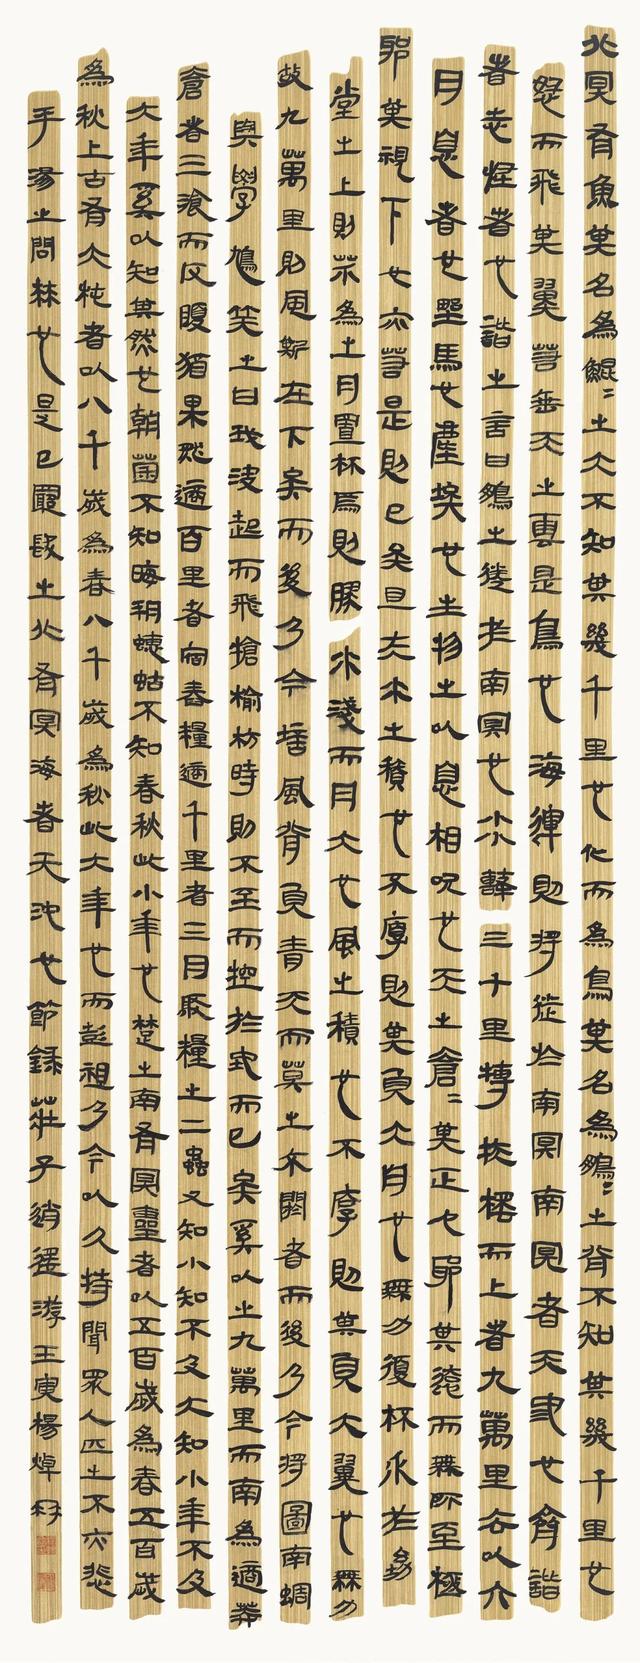 北冥有魚其名為鯤=之大不知其幾千里也化而為鳥其名為鵬=之背不知其幾千里也
怒而飛其翼若垂天之雲是鳥也海運則將徙於南冥南冥者天池也齊諧
者志怪者也諧之言曰鵬之徙於南冥也水擊三千里摶扶搖而上者九萬里去以六
月息者也野馬也塵埃也生物之以息相吹也天之蒼=其正色邪其遠而無所至極
邪其視下也亦若是則已矣且夫水之積也不厚則其負大舟也無力覆杯水於坳
堂之上則芥為之舟置杯焉則膠水淺而舟大也風之積也不厚則其負大翼也無力
故九萬里則風斯在下矣而後乃今培風背負青天而莫之夭閼者而後乃今將圖南蜩
與學鳩笑之曰我決起而飛搶榆枋時則不至而控於地而已矣奚以之九萬里而南為適莽
蒼者三飡而反腹猶果然適百里者宿舂糧適千里者三月聚糧之二蟲又知小知不及大知小年不及
大年奚以知其然也朝菌不知晦朔蟪蛄不知春秋此小年也楚之南有冥靈者以五百歲為春五百歲
為秋上古有大椿者以八千歲為春八千歲為秋此大年也而彭祖乃今以久特聞眾人匹之不亦悲
乎湯之問棘也是已窮髮之北有冥海者天池也節錄莊子逍遙游壬寅楊焯